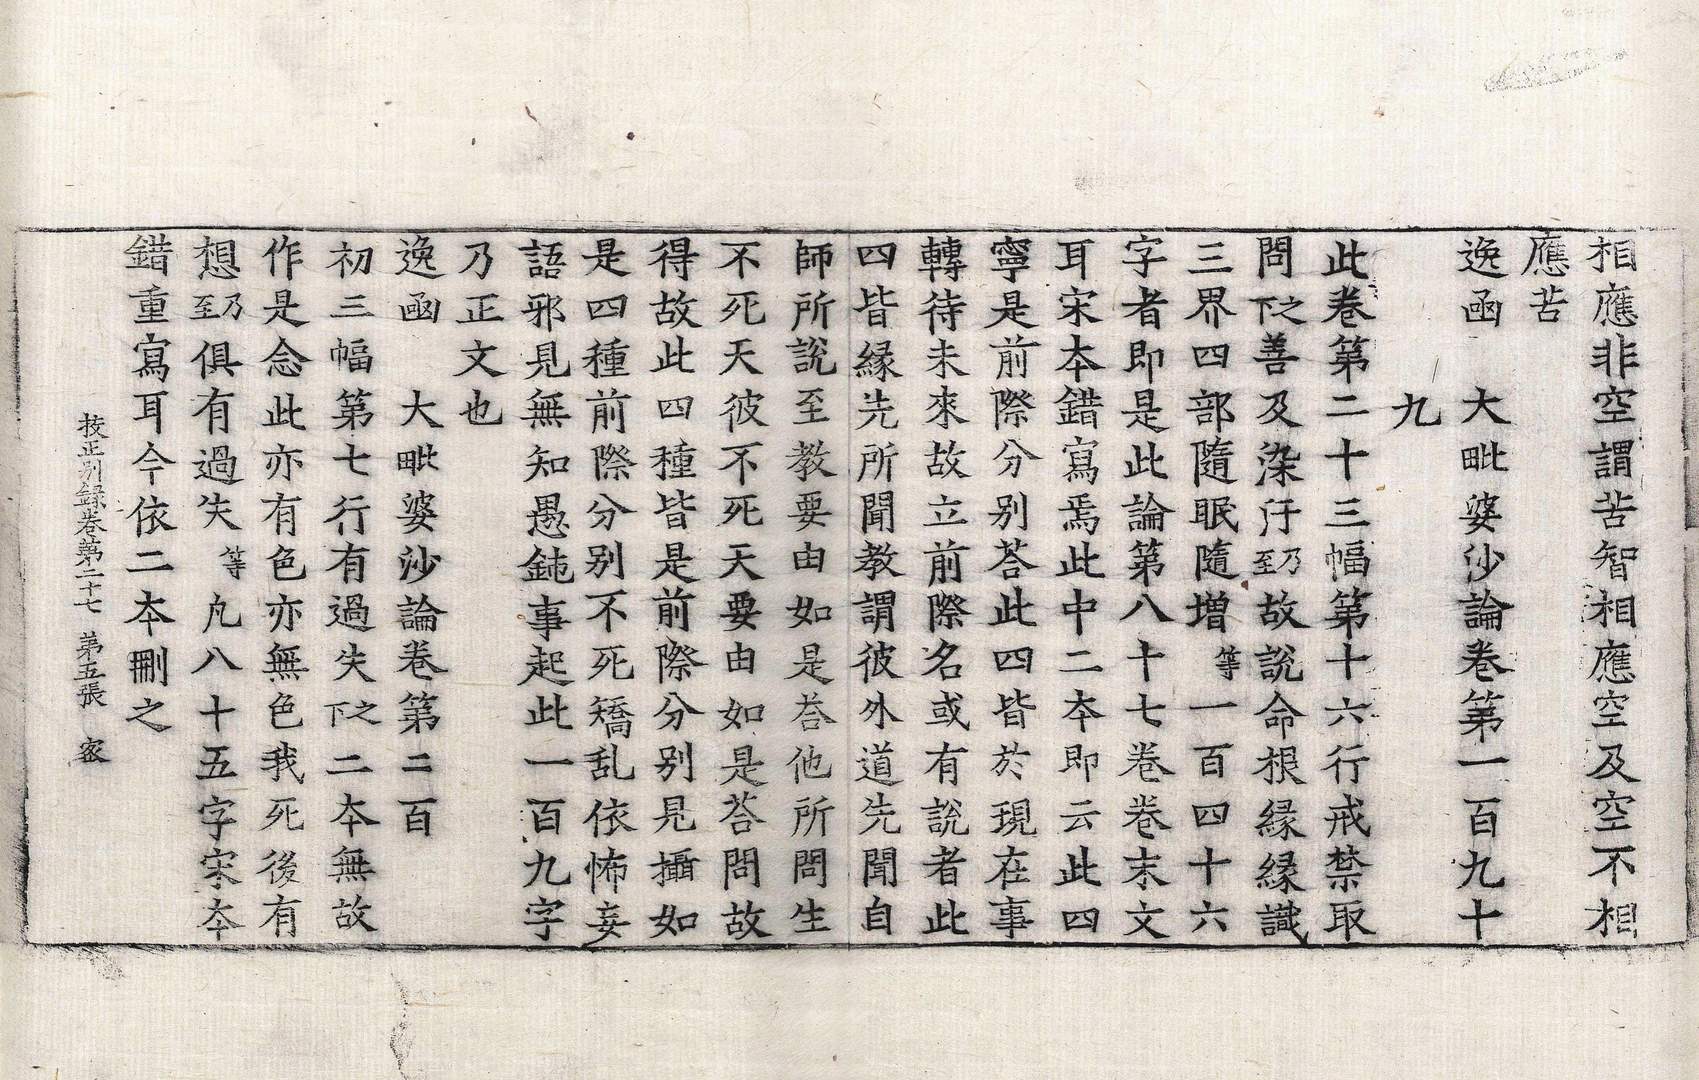 相應非空謂苦智相應空及空不相
應苦
逸函　大毗婆沙論卷第一百九十
九
此卷第二十三幅第十六行戒禁取
問之下善及染汙乃至故說命根縁縁識
三界四部隨眠隨增等一百四十六
字者即是此論第八十七卷卷末文
耳宋本錯寫焉此中二本即云此四
寧是前際分别荅此四皆於現在事
轉待未來故立前際名或有說者此
四皆縁先所聞教謂彼外道先聞自
師所說至教要由如是荅他所問生
不死天彼不死天要由如是荅問故
得故此四種皆是前際分别見攝如
是四種前際分别不死矯乱依怖妄
語邪見無知愚鈍事起此一百九字
乃正文也
逸函　大毗婆沙論卷第二百
初三幅第七行有過失之下二本無故
作是念此亦有色亦無色我死後有
想乃至俱有過失等凡八十五字宋本
錯重寫耳今依二本刪之
挍正别録卷第二十七　第五張　密